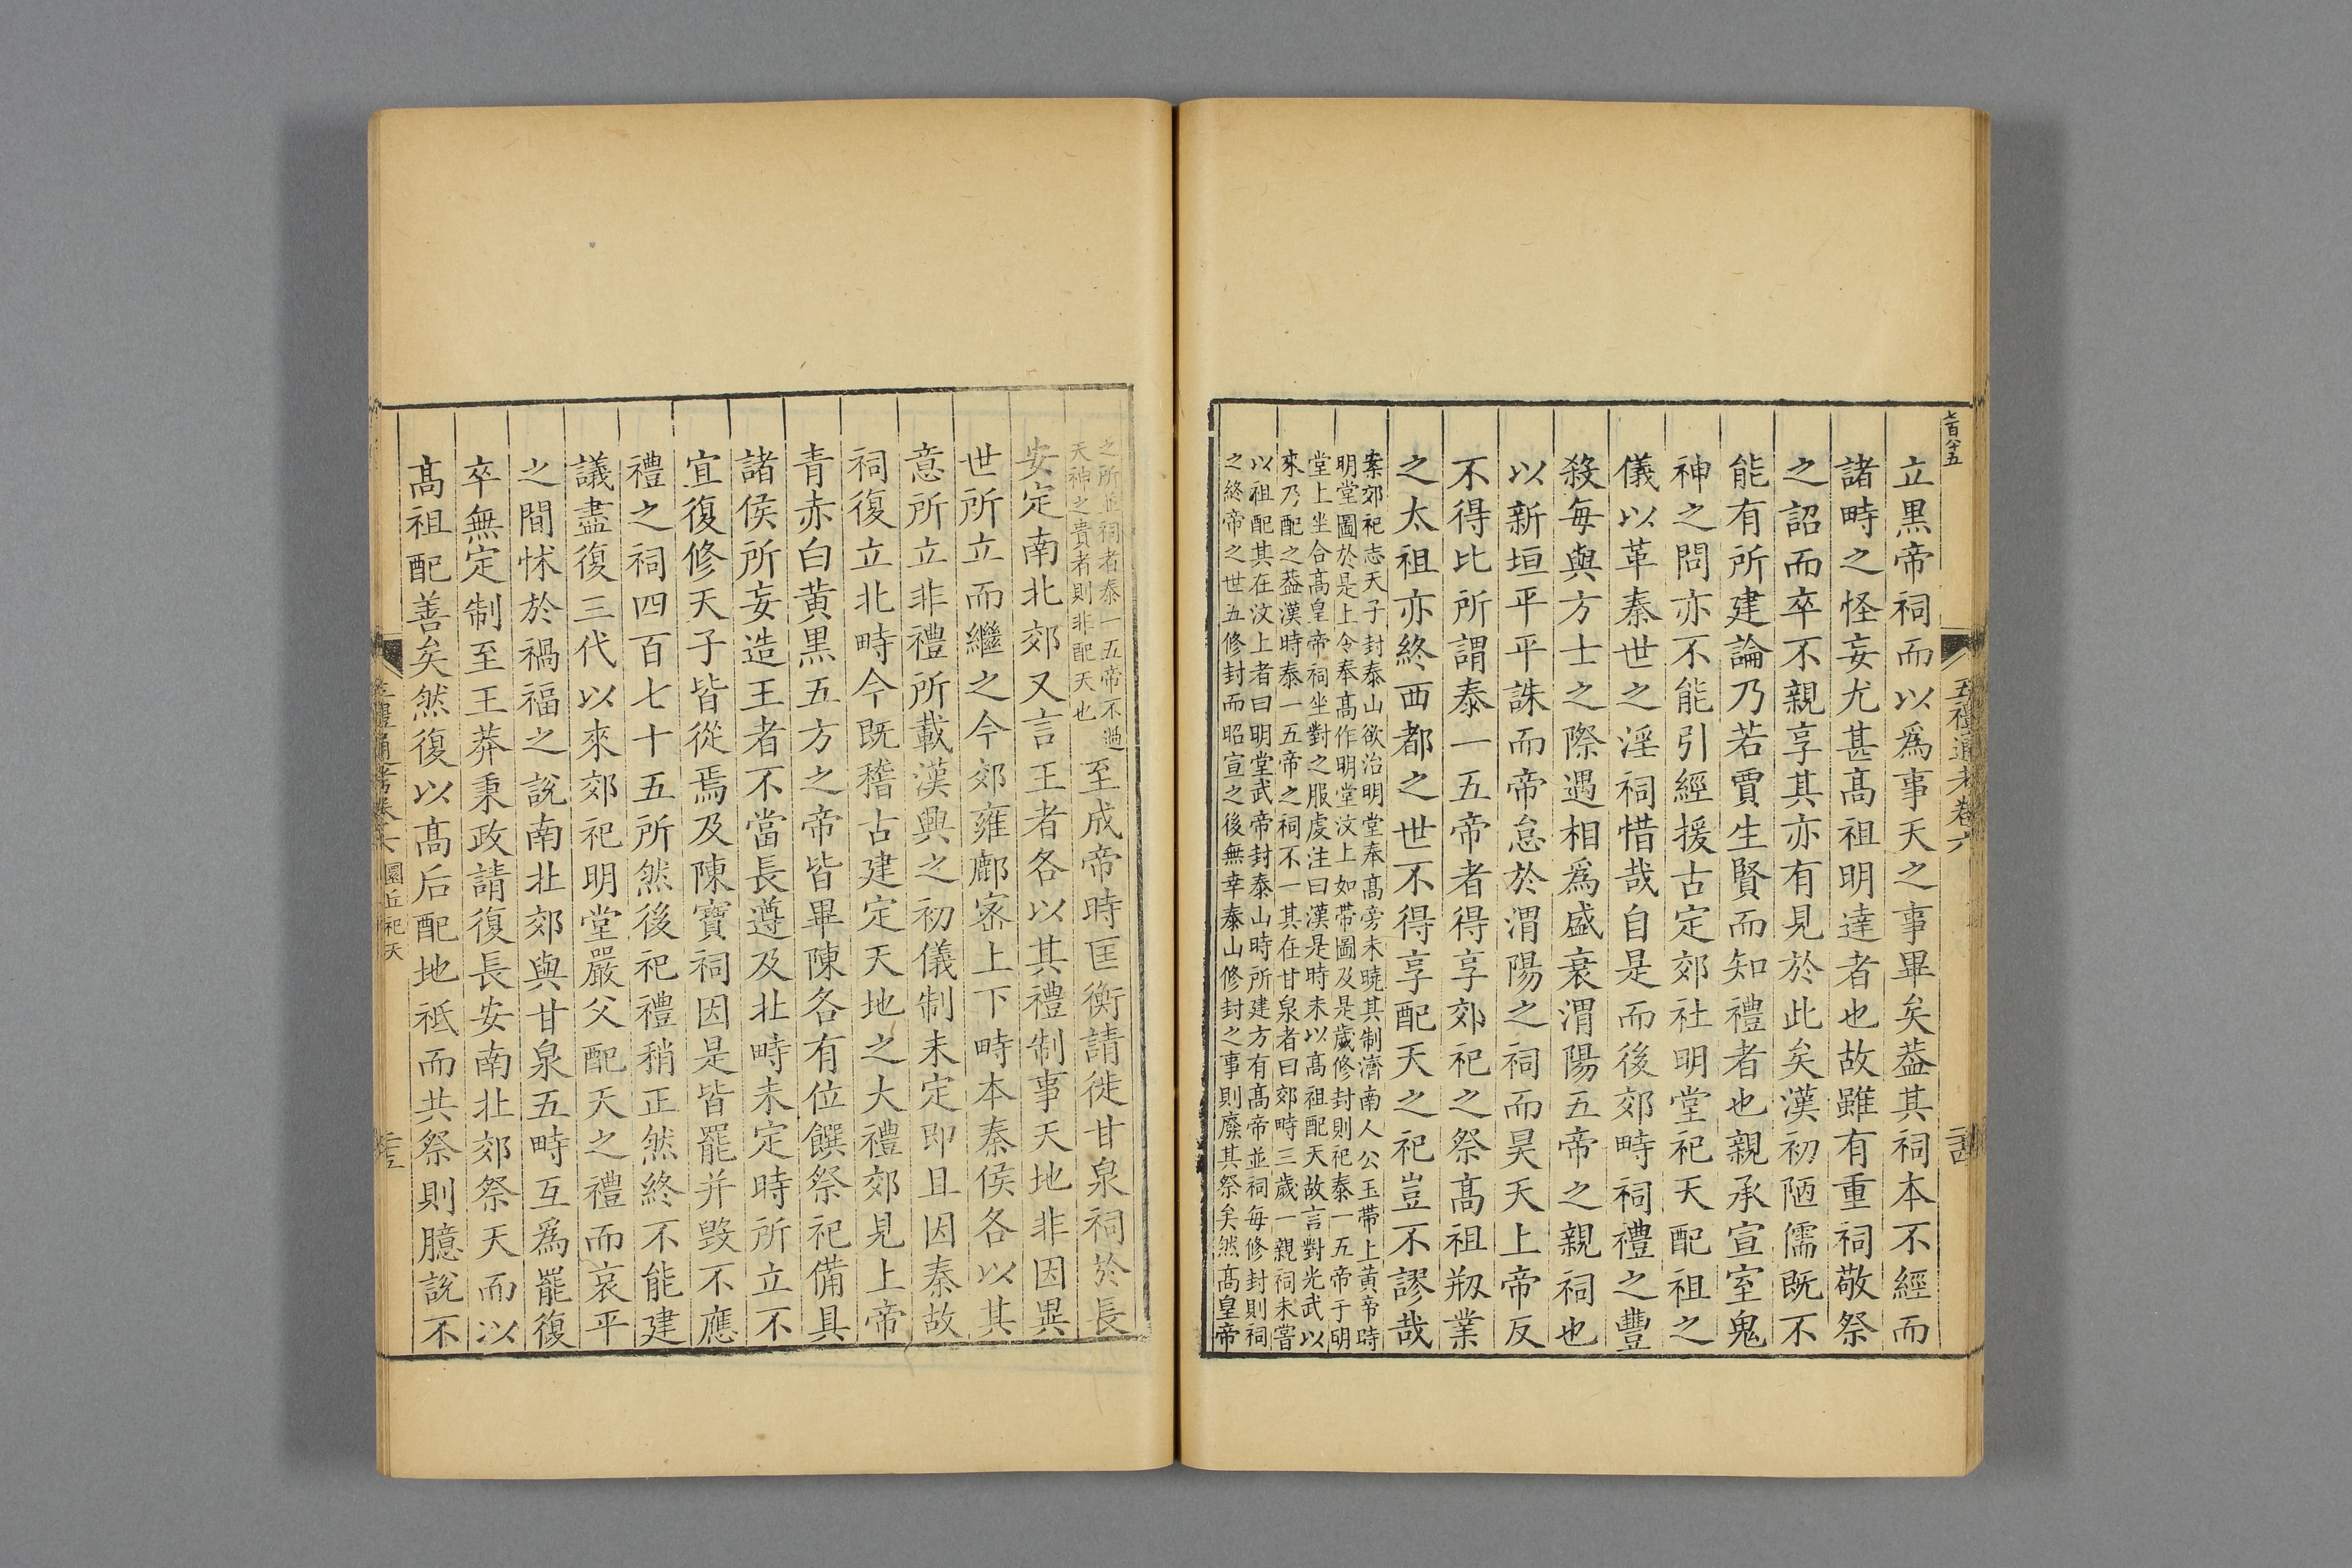 七百八十五
五禮通考卷六
立黒帝祠而以爲事天之事畢矣葢其祠本不經而
諸畤之怪妄尤甚髙祖明達者也故雖有重祠敬祭
之詔而卒不親享其亦有見於此矣漢初陋儒既不
能有所建論乃若賈生賢而知禮者也親承宣室鬼
神之問亦不能引經援古定郊社明堂祀天配祖之
儀以革秦世之淫祠惜哉自是而後郊畤祠禮之豐
殺毎與方士之際遇相爲盛衰渭陽五帝之親祠也
以新垣平平誅而帝怠於渭陽之祠而昊天上帝反
不得比所謂泰一五帝者得享郊祀之祭髙祖剏業
之太祖亦終西都之世不得享配天之祀豈不謬哉
案郊祀志天子封泰山欲治明堂奉髙旁未曉其制濟南人公玉帶上黄帝時
明堂圖於是上令奉髙作明堂汶上如帶圖及是歲修封則祀泰一五帝于明
堂上坐合髙皇帝祠坐對之服虔注曰漢是時未以髙祖配天故言對光武以
來乃配之葢漢時泰一五帝之祠不一其在甘泉者曰郊畤三歲一親祠未嘗
以祖配其在汶上者曰明堂武帝封泰山時所建方有髙帝並祠毎修封則祠
之終帝之世五修封而昭宣之後無幸泰山修封之事則廢其祭矣然髙皇帝
之所並祠者泰一五帝不過
天神之貴者則非配天也
至成帝時匡衡請徙甘泉祠於長
安定南北郊又言王者各以其禮制事天地非因異
世所立而繼之今郊雍鄜宻上下畤本秦侯各以其
意所立非禮所載漢興之初儀制未定即且因秦故
祠復立北畤今既稽古建定天地之大禮郊見上帝
青赤白黄黒五方之帝皆畢陳各有位饌祭祀備具
諸侯所妄造王者不當長遵及北畤未定時所立不
宜復修天子皆從焉及陳寶祠因是皆罷并毀不應
禮之祠四百七十五所然後祀禮稍正然終不能建
議盡復三代以來郊祀明堂嚴父配天之禮而哀平
之間怵於禍福之說南北郊與甘泉五畤互爲罷復
卒無定制至王莽秉政請復長安南北郊祭天而以
髙祖配善矣然復以髙后配地祗而共祭則臆說不
五禮通考卷六 圜丘祀天